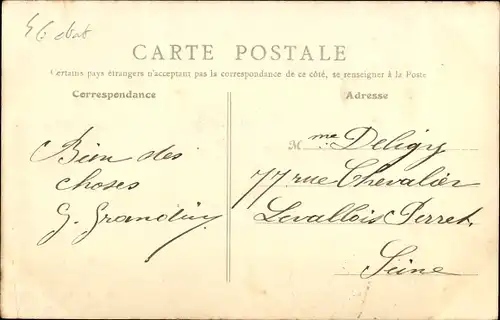 CARTE POSTALE
Certains pays étrangers n'acceptant pas la correspondance de ce côté, se renseigner à la Poste
Correspondance
Adresse
Bien des
choses
G.
Mme. Deligy
77 rue Chevalier
Levallois Perret.
Seine